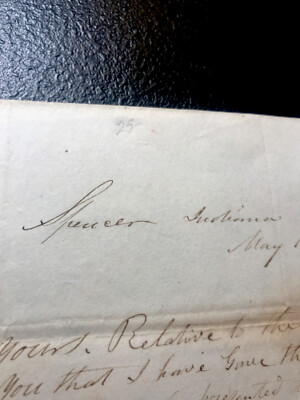 25
Spencer Indiana
May 1
yours. Relative to the
you that I have Gone th
presented